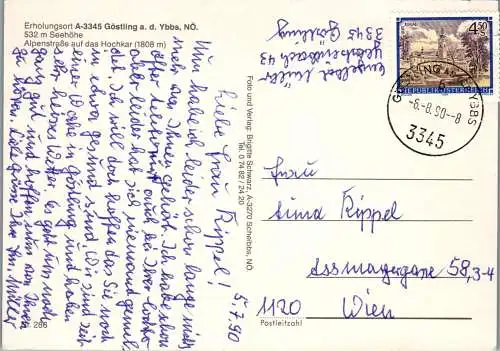 Erholungsort A-3345 Göstling a. d. Ybbs, NÖ.
532 m Seehöhe
Alpenstraße auf das Hochkar (1808 m)
5.7.90
Liebe Frau Kippel!
Nun habe ich leider schon lange nichts
mehr von Ihnen gehört. Ich habe schon
öfter und bei Ihrer
aber leider hat sich niemand gemel-
det. Ich will doch hoffen das Sie noch
in etwa gesund sind. Wir sind seit
einer Woche in Göstling und haben
sehr heisses Wetter. Es geht uns noch
ganz gut und hoffen nun von Ihnen
zu hören. Liebe Grüße Ihre Fr. Müller
Nr. 286
Foto und Verlag: Brigitte Schwarz, A-3270 Scheibbs, NÖ.
Tel. 0 74 82 / 24 20
Müller
43
3345 Göstling
4.50
REPUBLIK ÖSTERREICH
GÖSTLING A. D. YBBS
-6.-8.90--8
3345
Frau
Anna Kippel
Assmayergasse 58,3-4
1120 Wien
Postleitzahl